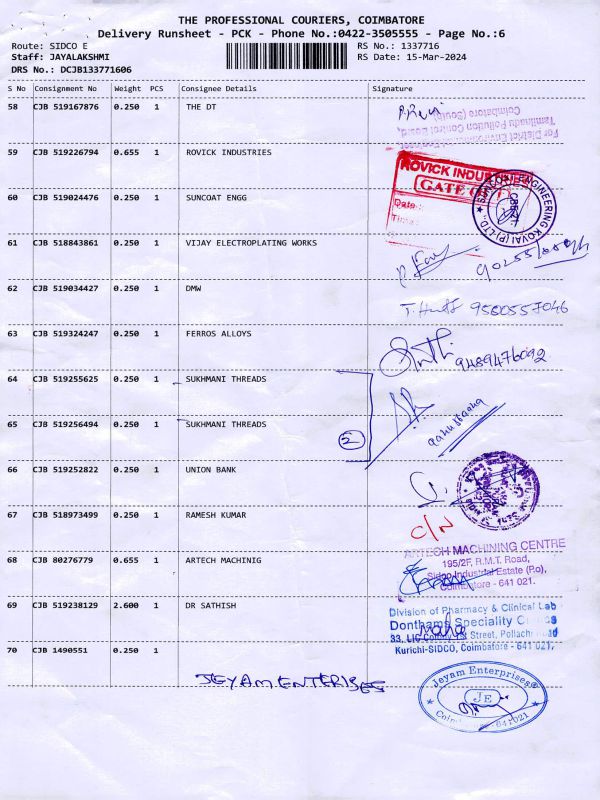 THE PROFESSIONAL COURIERS, COIMBATORE
Delivery Runsheet - PCK - Phone No.:0422-3505555 - Page No.:6
Route: SIDCO E RS No.: 1337716
Staff: JAYALAKSHMI RS Date: 15-Mar-2024
DRS No.: DCJB133771606
S No Consignment No Weight PCS Consignee Details Signature
58 CJB 519167876 0.250 1 THE DT
For District Environmental Engineer
Tamilnadu Pollution Control Board,
Coimbatore (South)
59 CJB 519226794 0.655 1 ROVICK INDUSTRIES
ROVICK INDUSTRIES
GATE
Date :
Time :
60 CJB 519024476 0.250 1 SUNCOAT ENGG
ENGINEERING KOVAI (P) LTD.,
61 CJB 518843861 0.250 1 VIJAY ELECTROPLATING WORKS
62 CJB 519034427 0.250 1 DMW
9580557046
63 CJB 519324247 0.250 1 FERROS ALLOYS
9489476092
64 CJB 519255625 0.250 1 SUKHMANI THREADS
65 CJB 519256494 0.250 1 SUKHMANI THREADS
2
66 CJB 519252822 0.250 1 UNION BANK
67 CJB 518973499 0.250 1 RAMESH KUMAR
C/N
68 CJB 80276779 0.655 1 ARTECH MACHINIG
ARTECH MACHINING CENTRE
195/2F, R.M.T. Road,
Sidco Industrial Estate (P.o),
Coimbatore - 641 021.
69 CJB 519238129 2.600 1 DR SATHISH
Division of Pharmacy & Clinical Lab
Donthams Speciality
Maha
33, LIC Colony Street, Pollachi Road
Kurichi-SIDCO, Coimbatore - 641 021.
70 CJB 1490551 0.250 1
JEYAM ENTERISES
Jeyam Enterprises
JE
Coimbatore 641021